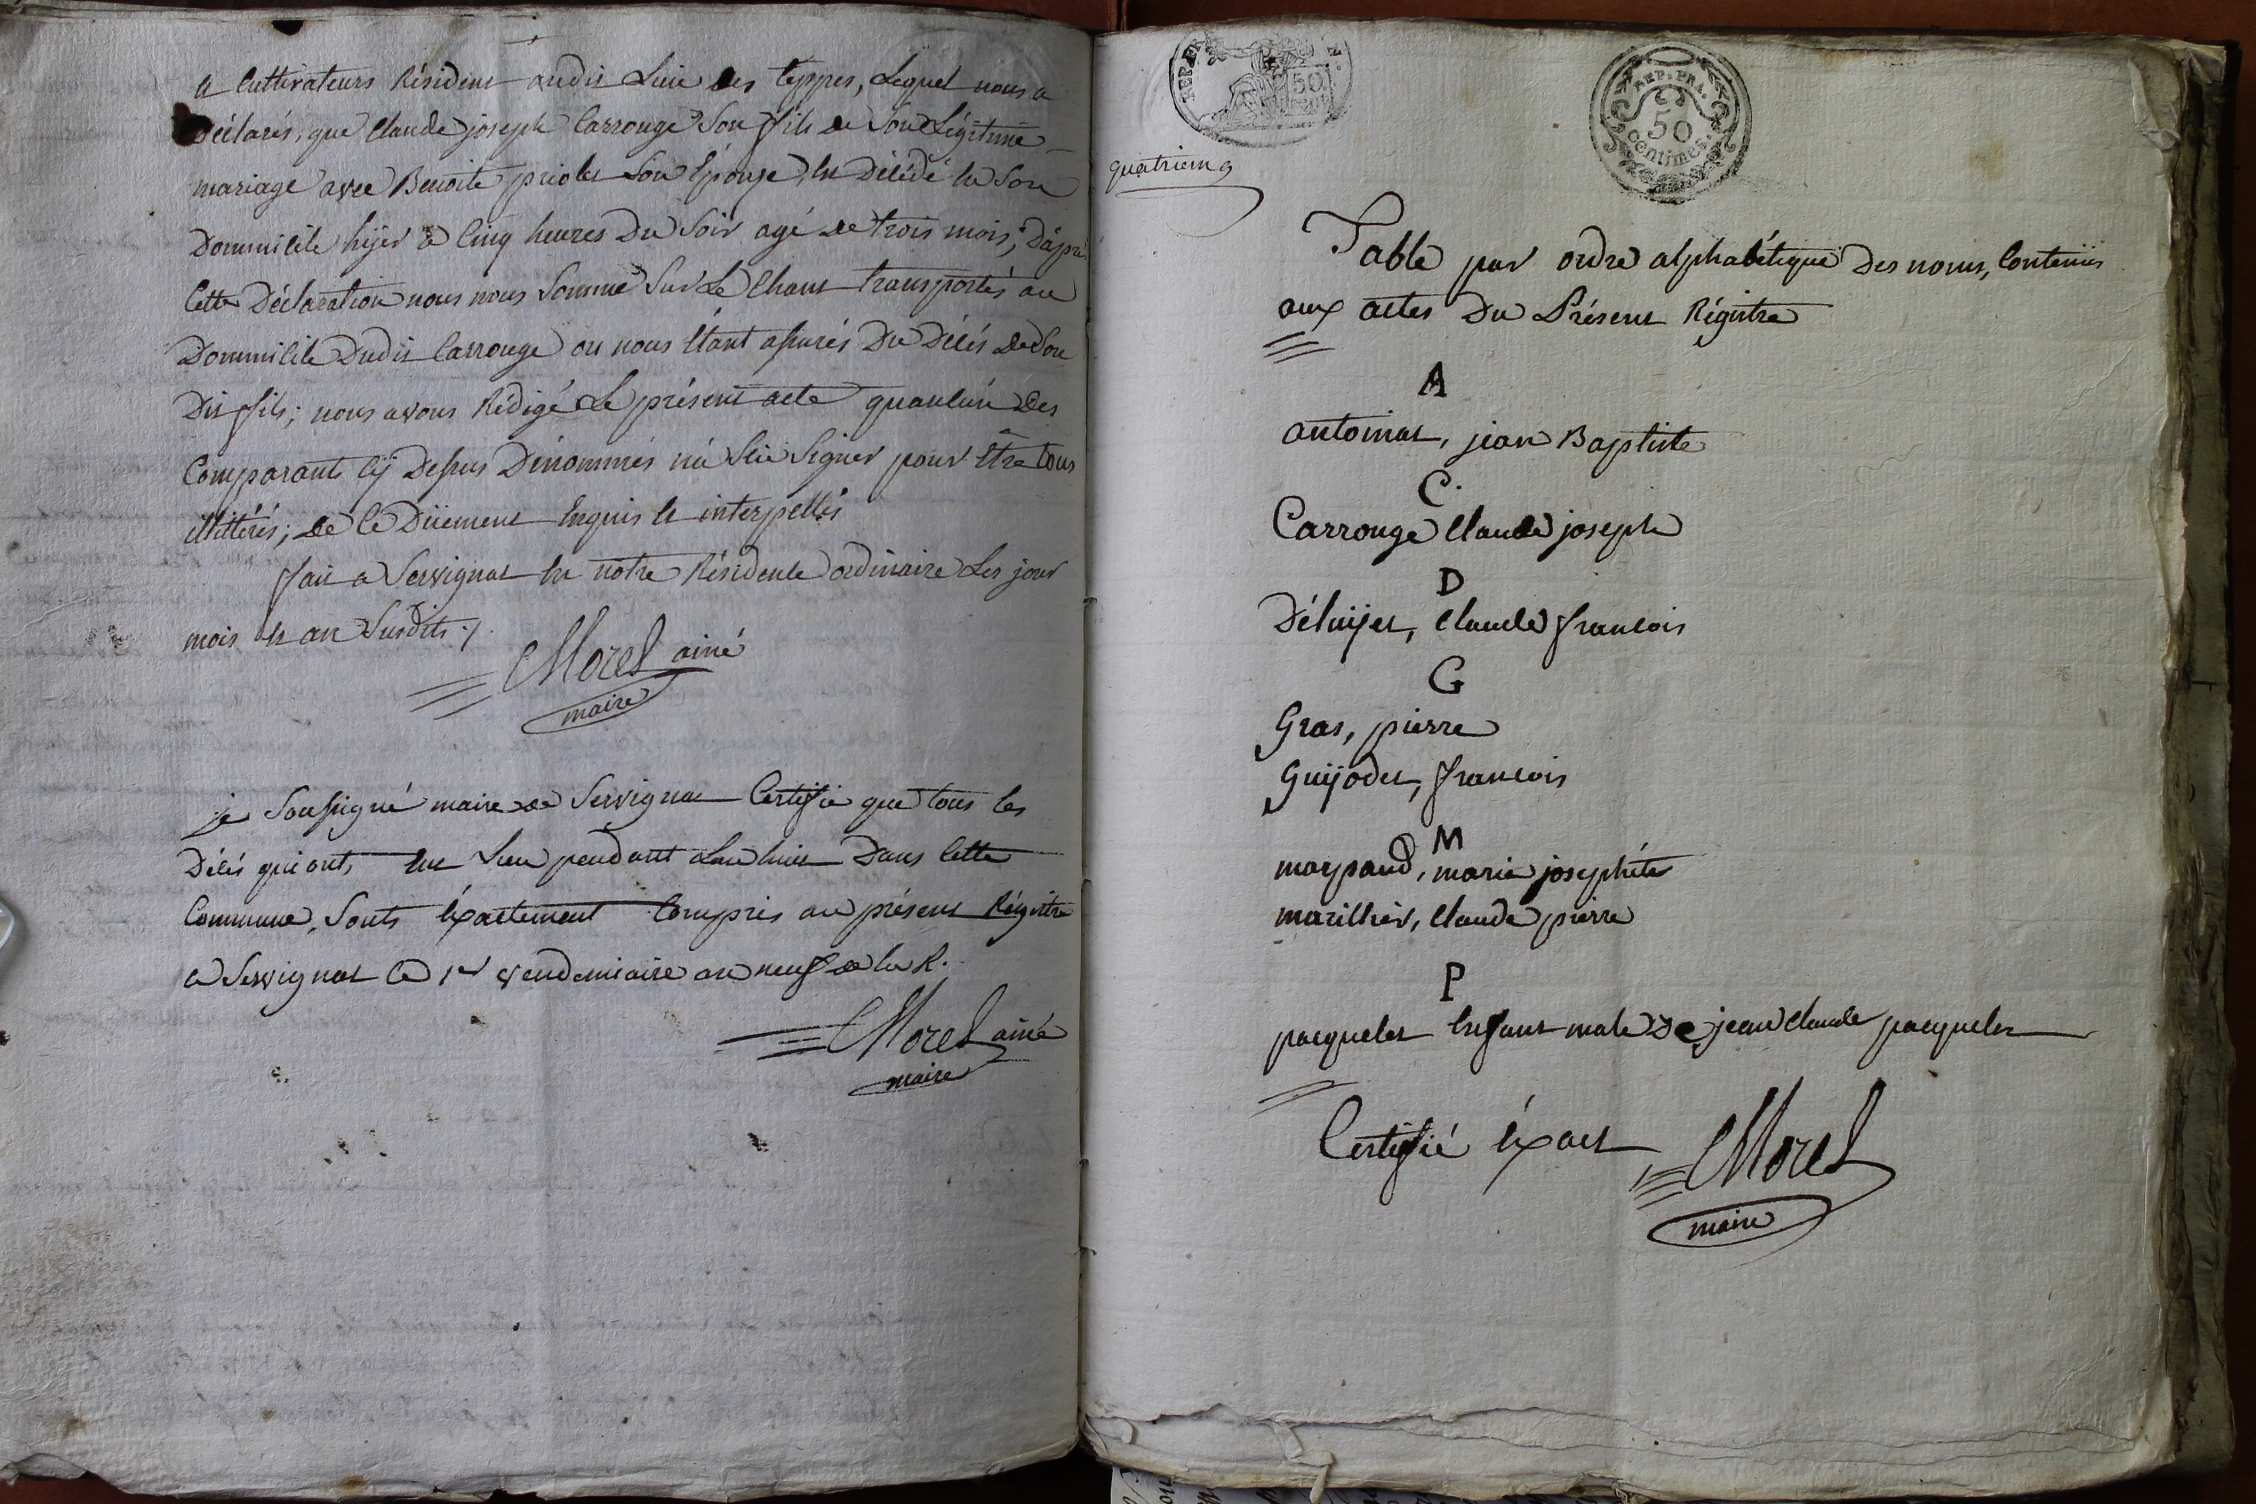 a Cultivateurs Résident audit Lieu des teppes, Lequel nous a
Déclarés, que Claude joseph Carrouge Son fils de Son Légitime
mariage avec Benoite priolet Son Épouse, Est Décédé En Son
Dommicile hijer a Cinq heures Du Soir agé de trois mois; D'après
Cette Déclaration nous nous Somme Sur Le Chant transportés au
Dommicile Dudit Carrouge ou nous Étant assurés Du Décés de Son
Dit fils; nous avons Rédigé Le présent acte qu'aucun des
Comparants Cy Dessus Dénommés n'a Scu Signer pour Être tous
illitérés; de Ce Düement Enquis Et interpellés
fait a Servignat En notre Résidence ordinaire Les jour
mois Et an Susdits ./.
Morel ainé
maire
je Soussigné maire de Servignat Certifie que tous les
Décés qui ont, Eut Lieu pendant L'an huit Dans Cette
Commune, Sonts Éxactement Compris au présent Régistre
a Servignat Le 1er vendemiaire an neuf de la R.
Morel ainé
maire
REP. FRA.
50
REP. FRA.
50
Centimes.
quatriem
Table par ordre alphabétique Des noms, Contenüs
aux actes Du Présent Régistre
A
antoinat, jean Baptiste
C.
Carrouge Claude joseph
D
Claude francois
G
Gras, pierre
Guijodet, francois
M
maypaud, marie josephéte
marillier, Claude pierre
P
pacquelet Enfant male De jean Claude pacquelet
Certifié Éxact
Morel
maire